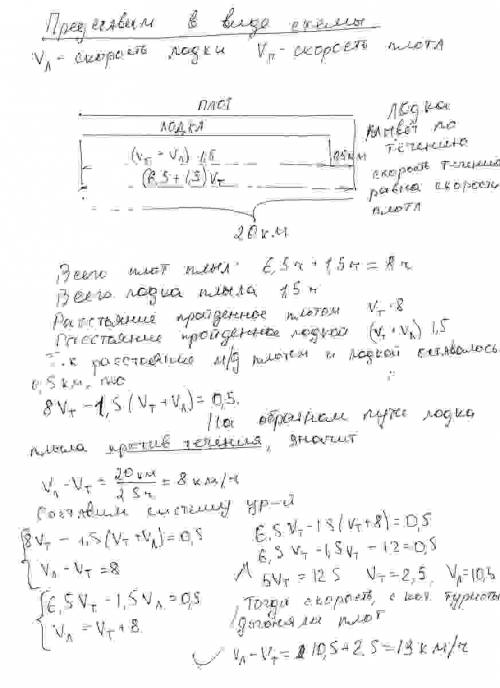 Представим в виде схемы
Vл - скорость лодки Vп - скорость плота
ПЛОТ
ЛОДКА
0,5 км
(Vт - Vл) · 1,5
(6,5 + 1,5) Vт
20 км
ЛОДКА
плывёт по
течению
скорость течения
равна скорости
плота
Всего плот плыл 6,5ч + 1,5ч = 8ч
Всего лодка плыла 1,5ч
Расстояние пройденное плотом Vт · 8
Расстояние пройденное лодкой (Vт + Vл) 1,5
Т.к расстояние м/д плотом и лодкой оставалось
0,5 км, то
8Vт - 1,5 (Vт + Vл) = 0,5.
На обратном пути лодка
плыла против течения, значит
Vл - Vт = 20 км / 2,5ч = 8 км/ч
Составим систему ур-й
8Vт - 1,5 (Vт + Vл) = 0,5
Vл - Vт = 8
6,5Vт - 1,5Vл = 0,5
Vл = Vт + 8
6,5Vт - 1,5 (Vт + 8) = 0,5
6,5Vт - 1,5Vт - 12 = 0,5
5Vт = 12,5 Vт = 2,5, Vл = 10,5
Тогда скорость, с кот. туристы
догоняли плот
Vл - Vт = 10,5 + 2,5 = 13 км/ч